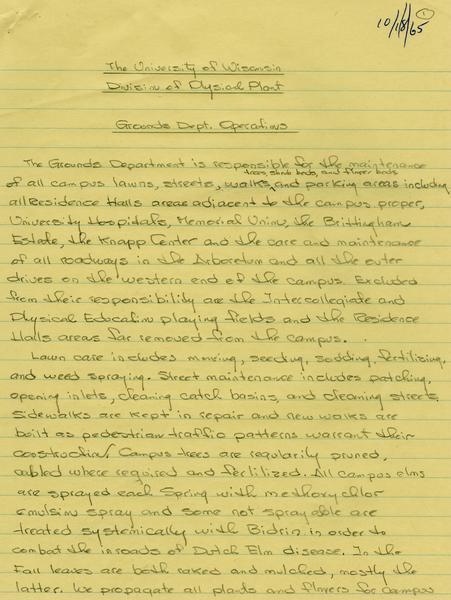 1
10/18/65
The University of Wisconsin
Division of Physical Plant
Grounds Dept. Operations
The Grounds Department is responsible for the maintenance
trees, shrub beds, and flower beds
of all campus lawns, streets, walks, and parking areas including
all Residence Halls areas adjacent to the campus proper,
University Hospitals, Memorial Union, the Brittingham
Estate, the Knapp Center and the care and maintenance
of all roadways in the Arboretum and all the outer
drives on the western end of the campus. Excluded
from their responsibility are the Intercollegiate and
Physical Education playing fields and the Residence
Halls areas far removed from the campus.
Lawn care includes mowing, seeding, sodding, fertilizing,
and weed spraying. Street maintenance includes patching,
opening inlets, cleaning catch basins, and cleaning streets.
Sidewalks are kept in repair and new walks are
built as pedestrian traffic patterns warrant their
construction. Campus trees are regularily pruned,
cabled where required and fertilized. All campus elms
are sprayed each Spring with methoxychlor
emulsion spray and some not sprayable are
treated systemically with Bidrin in order to
combat the inroads of Dutch Elm disease. In the
Fall leaves are both raked and mulched, mostly the
latter. We propagate all plants and flowers for campus